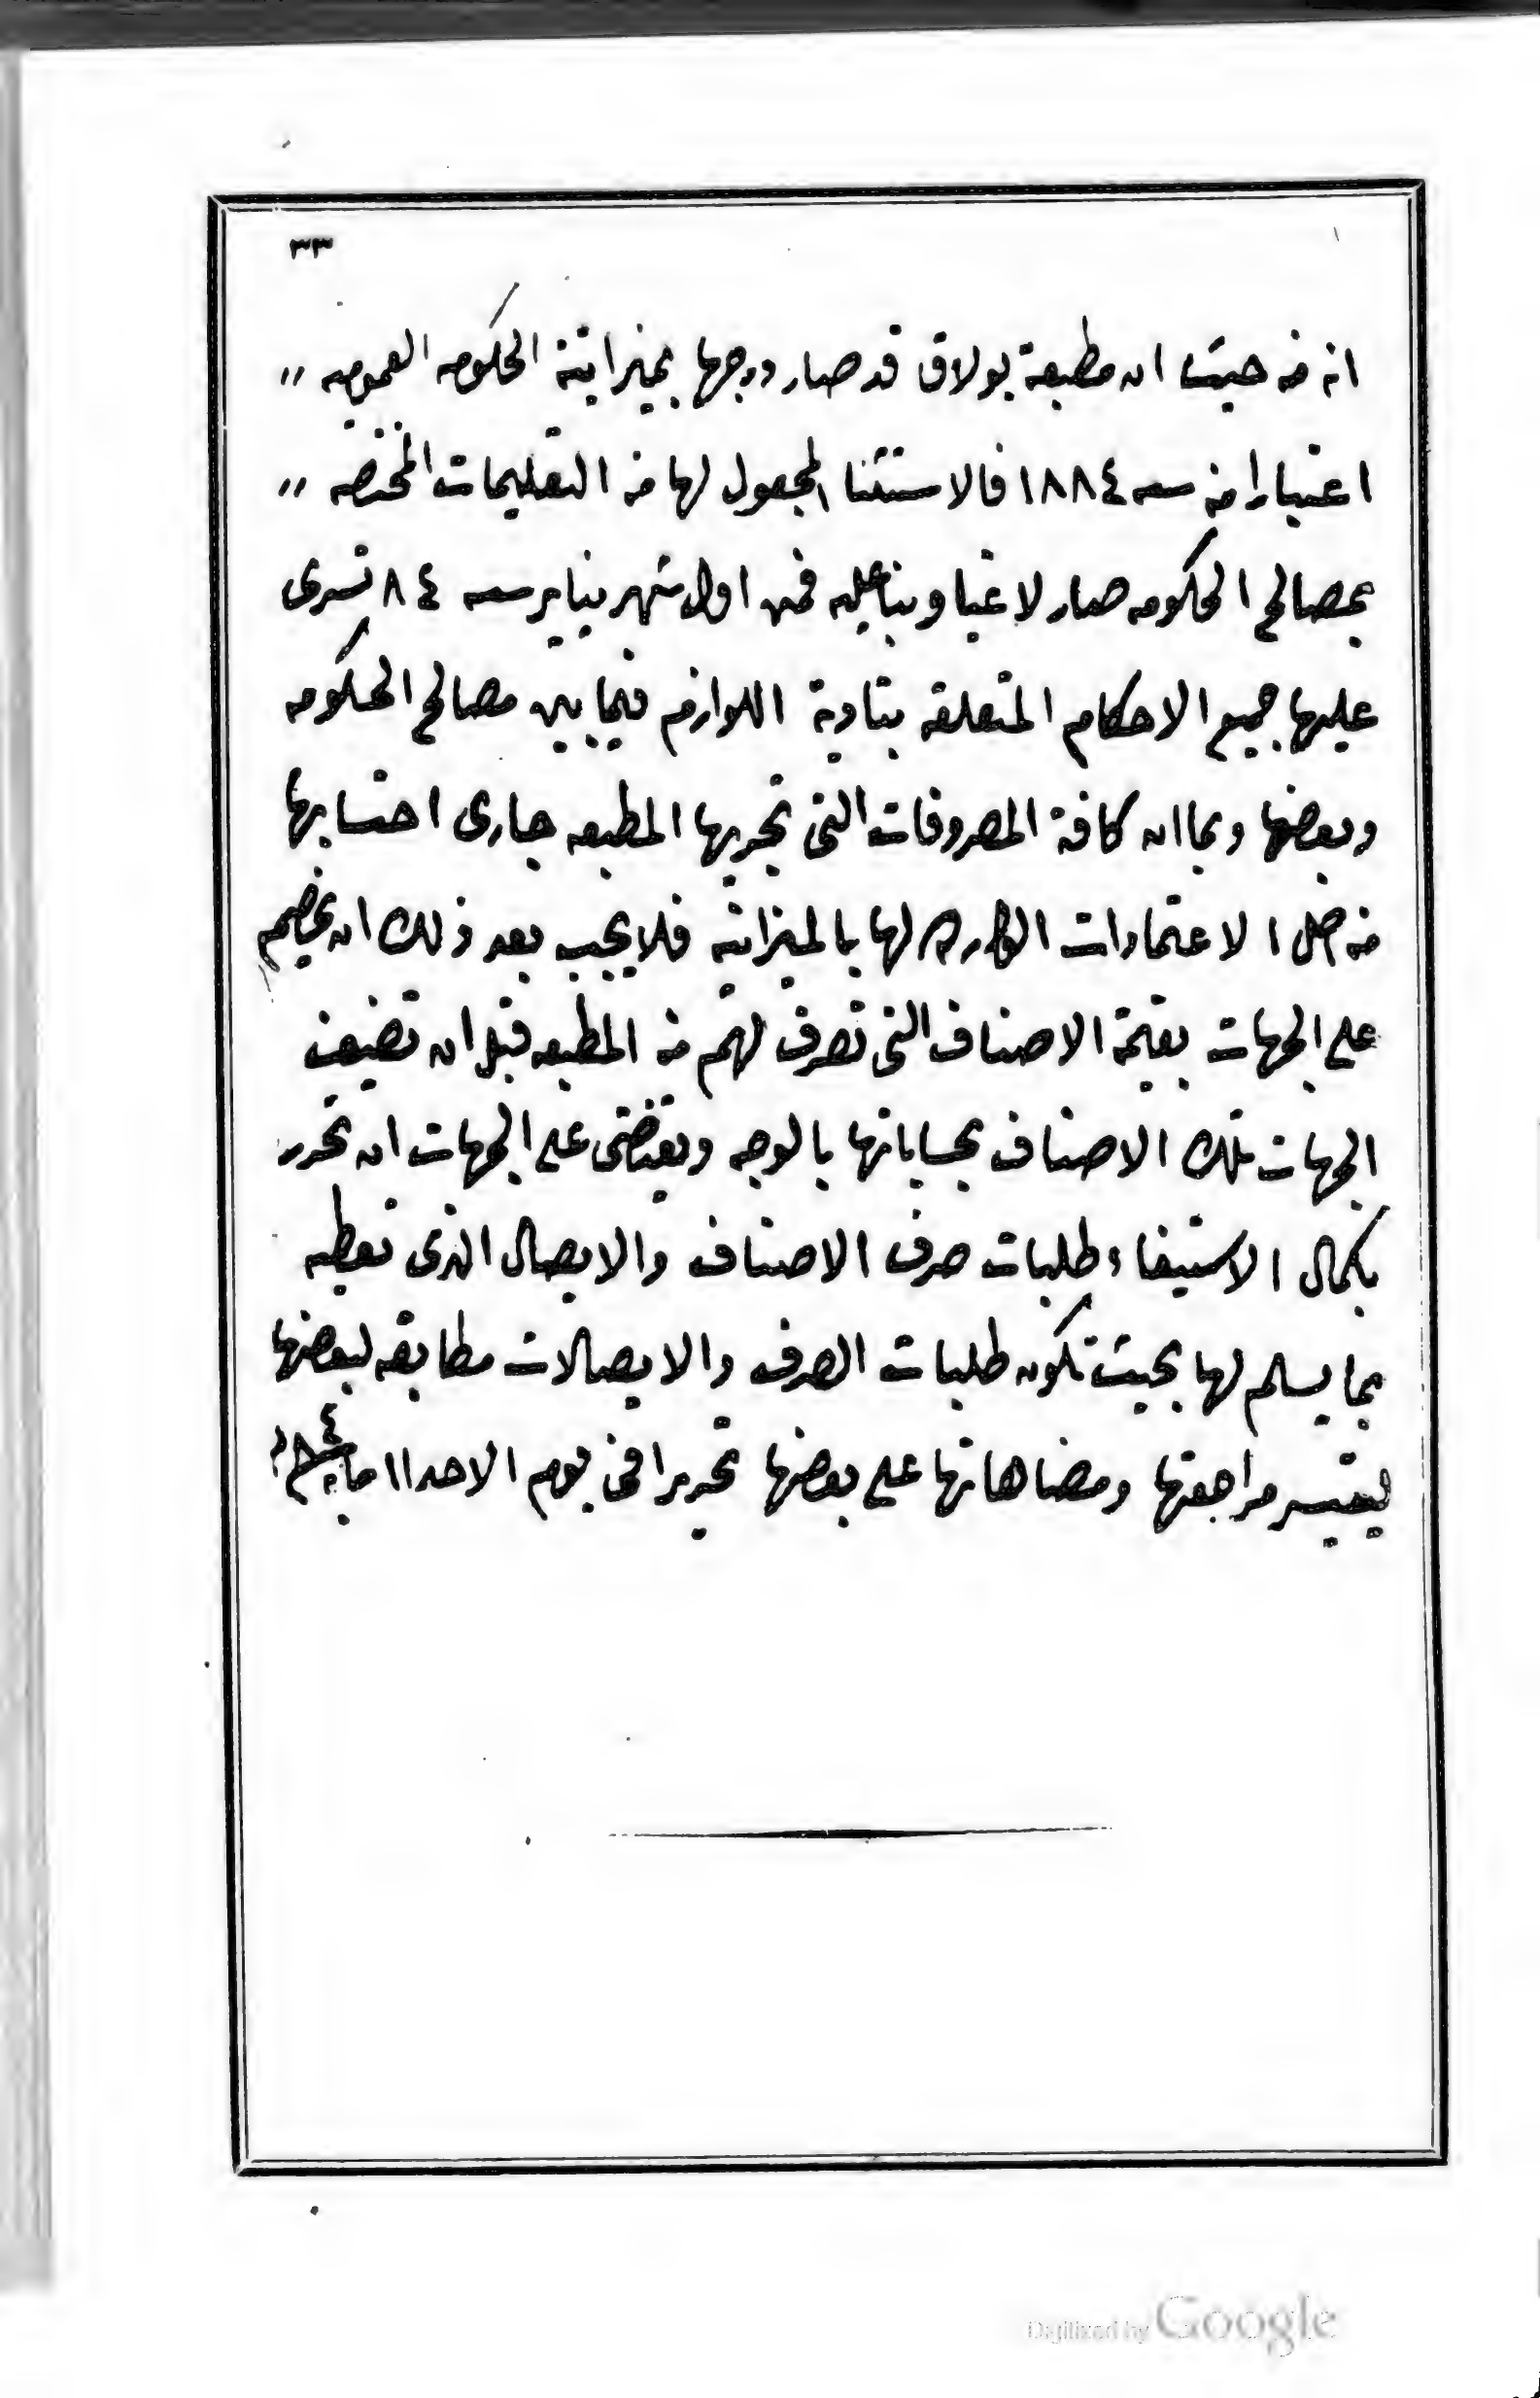 ٣٣
انه من حيث ان مطبعة بولاق قد صار درجها بميزانية الحكومه العموميه "
اعتبارا من سنه ١٨٨٤ فالاستثنا المجعول لها من التعليمات المختصه "
بمصالح الحكومه صار لاغيا وبناعليه فمن اول شهر يناير سنه ٨٤ تسرى
عليها جميع الاحكام المتعلقه بتادية اللوازم فيما بين مصالح الحكومه
وبعضها وبما ان كافة المصروفات التى تجريها المطبعه جارى احتسابها
من اصل الاعتمادات لها بالميزانيه فلا يجب بعد ذلك ان يخصم
على الجهات بقيمة الاصناف التى تصرف لهم من المطبعه قبل ان تضيف
الجهات تلك الاصناف بحساباتها بالوجه ويقتضى على الجهات ان تحرر
بكمال الاستيفاء طلبات صرف الاصناف والايصال الذى تعطيه
بما يسلم لها بحيث تكون طلبات الصرف والايصالات مطابقه لبعضها
ليتيسر مراجعتها ومضاهاتها على بعضها تحريرا فى يوم الاحد ١١ مايو سنه ٨٤
Digitized by Google